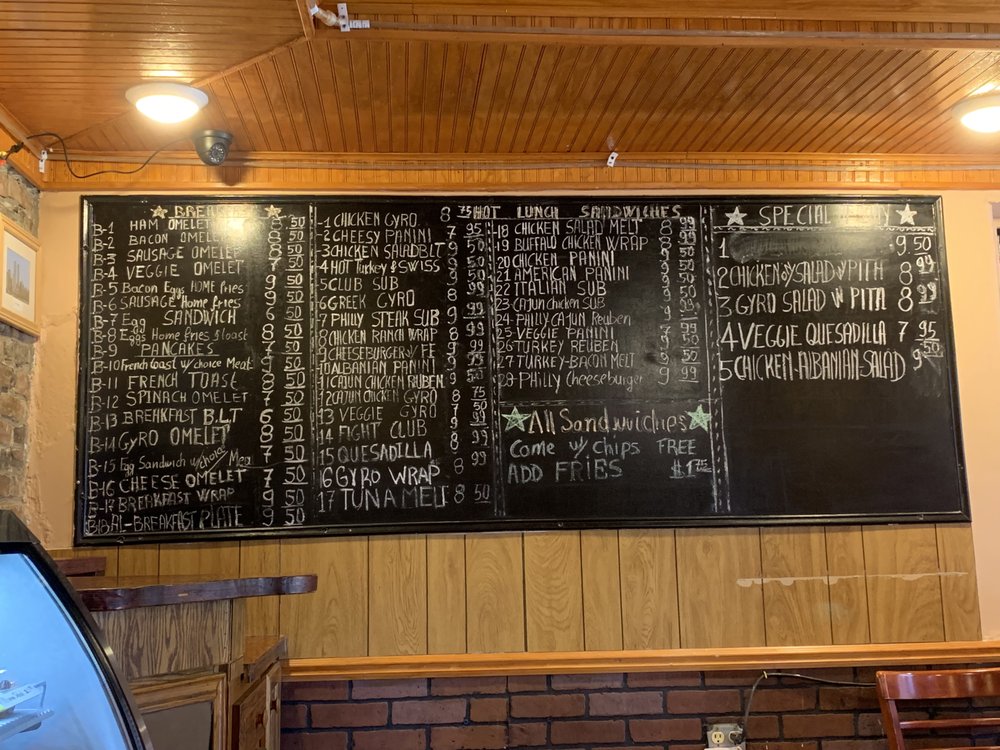 BREAK
B-1 HAM OMELET 8 50
B-2 BACON OMELET 8 50
B-3 SAUSAGE OMELET 8 50
B-4 VEGGIE OMELET 7 50
B-5 Bacon Eggs HOME fries 9 50
B-6 SAUSAGE Home fries 9 50
B-7 Egg SANDWICH 6 50
B-8 Eggs Home Fries & toast 8 50
B-9 PANCAKES 7 50
B-10 French toast w/ choice Meat 8 50
B-11 FRENCH TOAST 7 50
B-12 SPINACH OMELET 8 50
B-13 BREAKFAST B.L.T 6 50
B-14 GYRO OMELET 8 50
B-15 Egg Sandwich w/ choice Mea 7 50
B-16 CHEESE OMELET 7 50
B-17 BREAKFAST WRAP 9 50
B18 AL-BREAKFAST PLATE 9 50
1 CHICKEN GYRO 8 75
2 CHEESY PANINI 7 95
3 CHICKEN SALAD BLT
4 HOT Turkey & SWISS
5 CLUB SUB
6 GREEK GYRO
7 PHILLY STEAK SUB
8 CHICKEN RANCH WRAP
9 CHEESEBURGER W/ FF
10 ALBANIAN PANINI
11 CAJUN CHICKEN RUBEN
12 CAJUN CHICKEN GYRO
13 VEGGIE GYRO
14 FIGHT CLUB
15 QUESADILLA
16 GYRO WRAP 8 99
17 TUNA MELT 8 50
HOT LUNCH SANDWICHES
18 CHICKEN SALAD MELT 8 99
19 BUFFALO CHICKEN WRAP
20 CHICKEN PANINI
21 AMERICAN PANINI
22 ITALIAN SUB
23 CAJUN chicken SUB
24 PHILLY CAJUN Reuben
25 VEGGIE PANINI 7 99
26 TURKEY REUBEN
27 TURKEY-BACON MELT
28 PHILLY Cheeseburger
All Sandwiches
Come w/ Chips FREE
ADD FRIES $1 75
SPECIAL
1 9 50
2 CHICKEN SALAD W PITH 8 99
3 GYRO SALAD W PITA 8 99
4 VEGGIE QUESADILLA 7 95
5 CHICKEN-ALBANIAN-SALAD 9 50